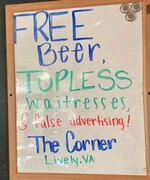 FREE
Beer,
TOPLESS
waitresses,
& false advertising!
The Corner
Lively, VA